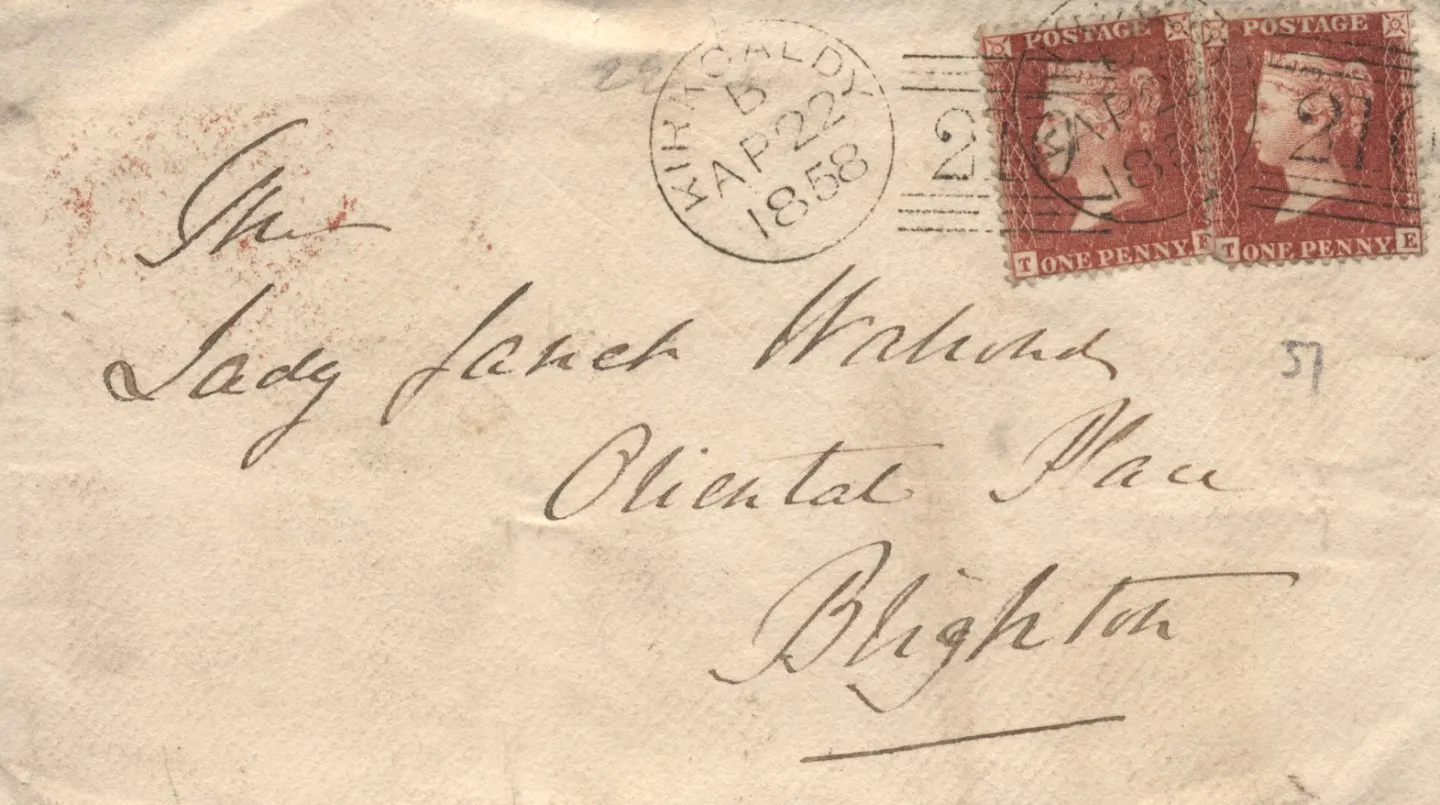 KIRKCALDY
B
AP 22
1858
210
POSTAGE
T ONE PENNY
POSTAGE
210
T ONE PENNY E
AP 22
The
Lady Janet Walrond
Oriental Place
Brighton
57